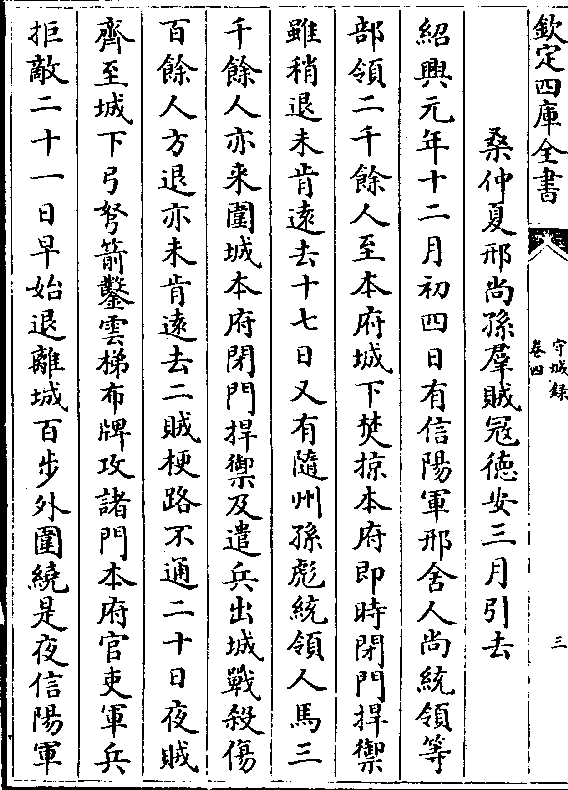 欽定四庫全書
守城録
卷四
三
桑仲夏邢尚孫羣賊冦德安三月引去
紹興元年十二月初四日有信陽軍邢舍人尚統領等
部領二千餘人至本府城下焚掠本府即時閉門捍禦
雖稍退未肯遠去十七日又有隨州孫彪統領人馬三
千餘人亦来圍城本府閉門捍禦及遣兵出城戰殺傷
百餘人方退亦未肯遠去二賊梗路不通二十日夜賊
齊至城下弓弩箭鑿雲梯布牌攻諸門本府官吏軍兵
拒敵二十一日早始退離城百步外圍繞是夜信陽軍